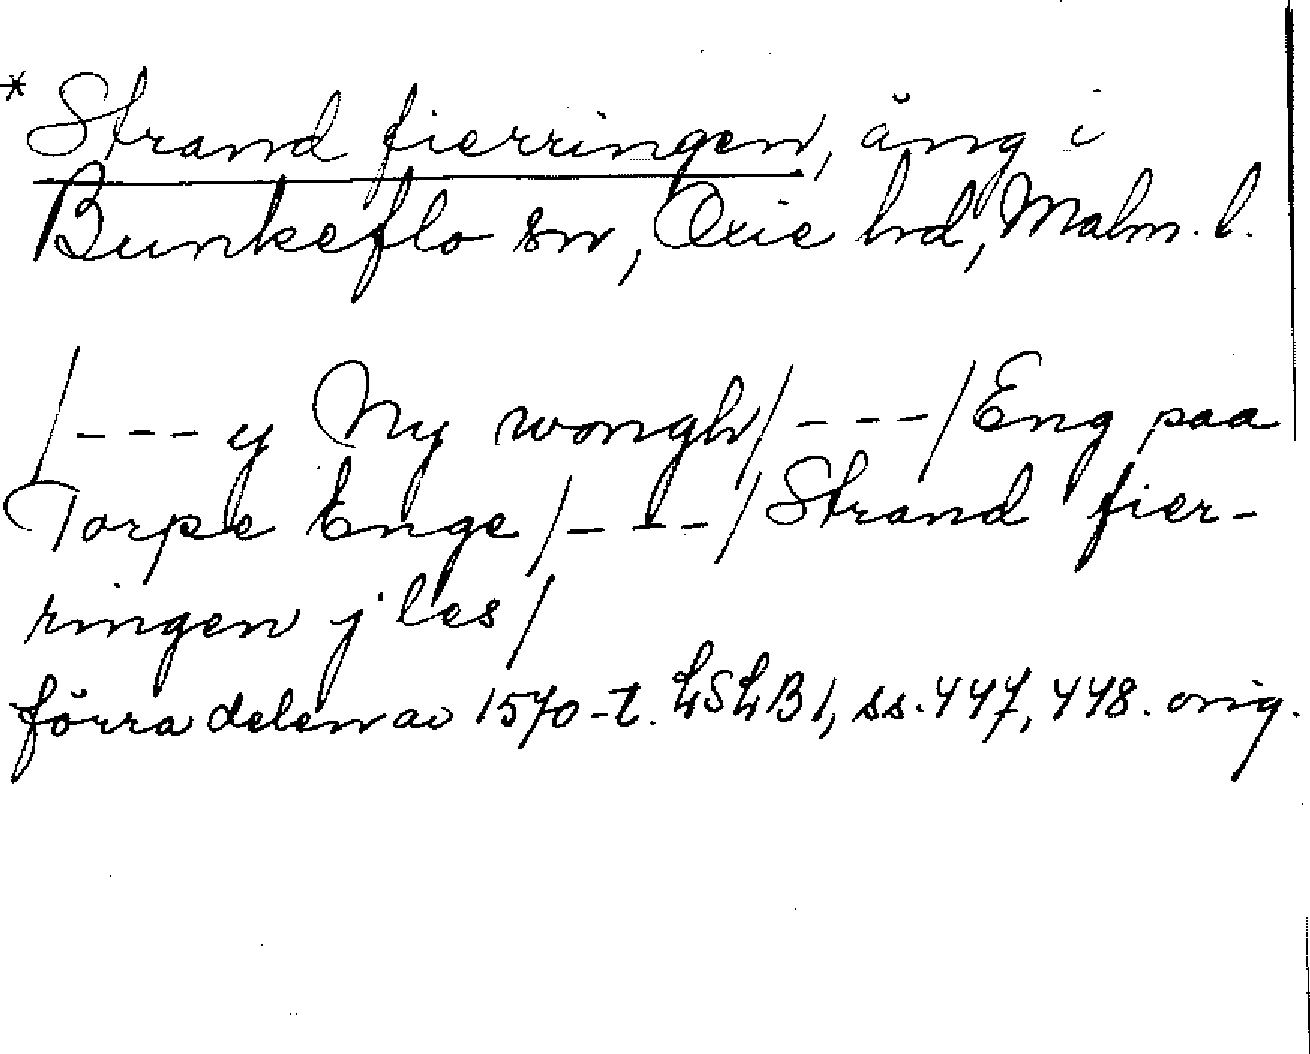 * Strand fierringen, äng i
Bunkeflo sn, Oxie hd, Malm. l.
/---y Ny wongh/---/Eng paa
Torpe Enge/---/Strand fier-
ringen j les/
förra delen av 1570-t. LSLB1, ss. 447, 448. orig.